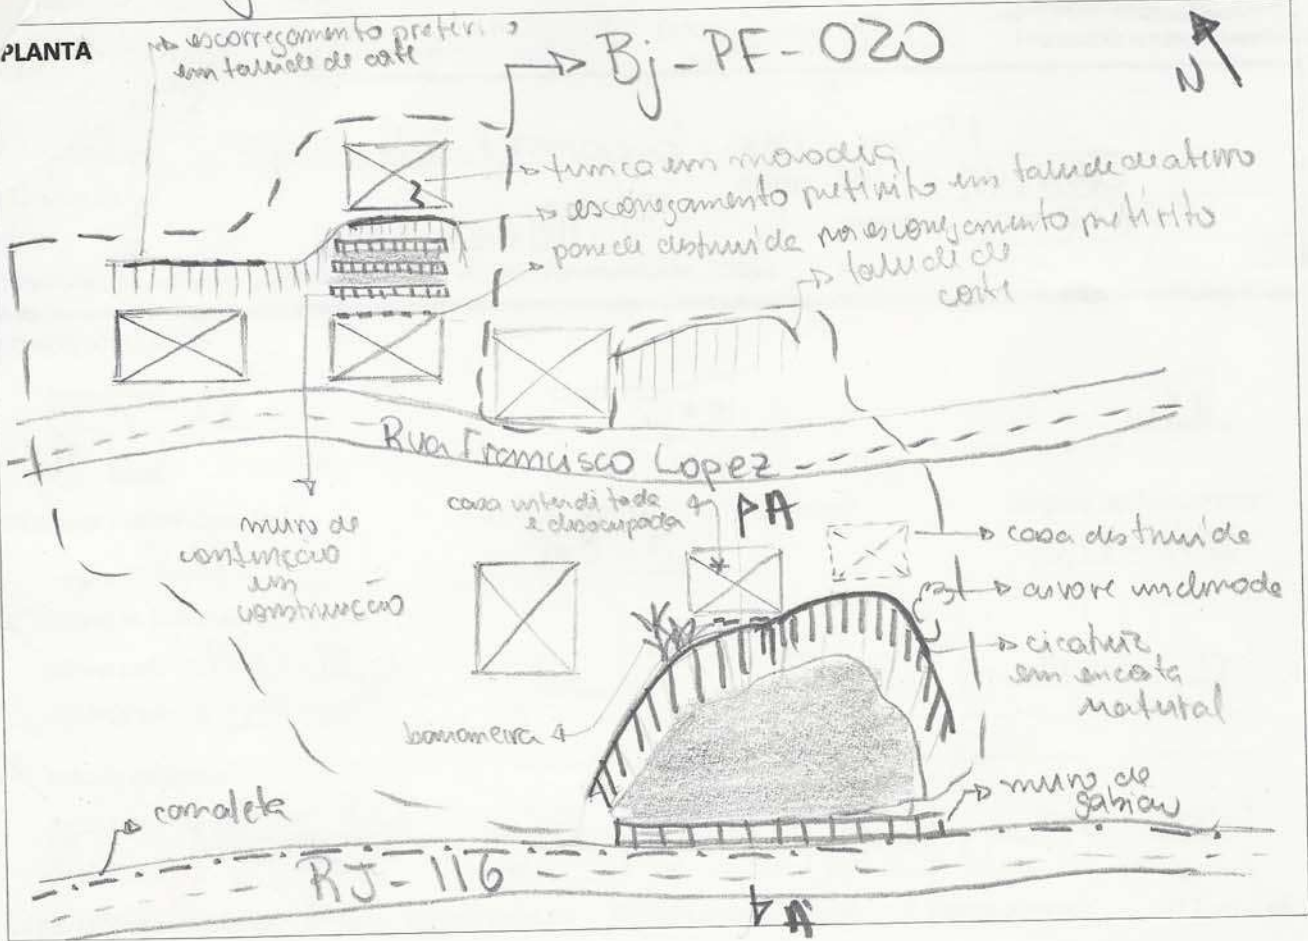 PLANTA
escorregamento pretérito
em talude de corte
Bj-PF-020
N
trinca em moradia
escorregamento pretérito em talude de aterro
parede destruída por escorregamento pretérito
talude de
corte
Rua Francisco Lopez
muro de
contenção
em
construção
casa interditada
e desocupada
A
casa destruída
árvore inclinada
cicatriz
em encosta
natural
bananeira
muro de
gabião
canaleta
RJ-116
A'